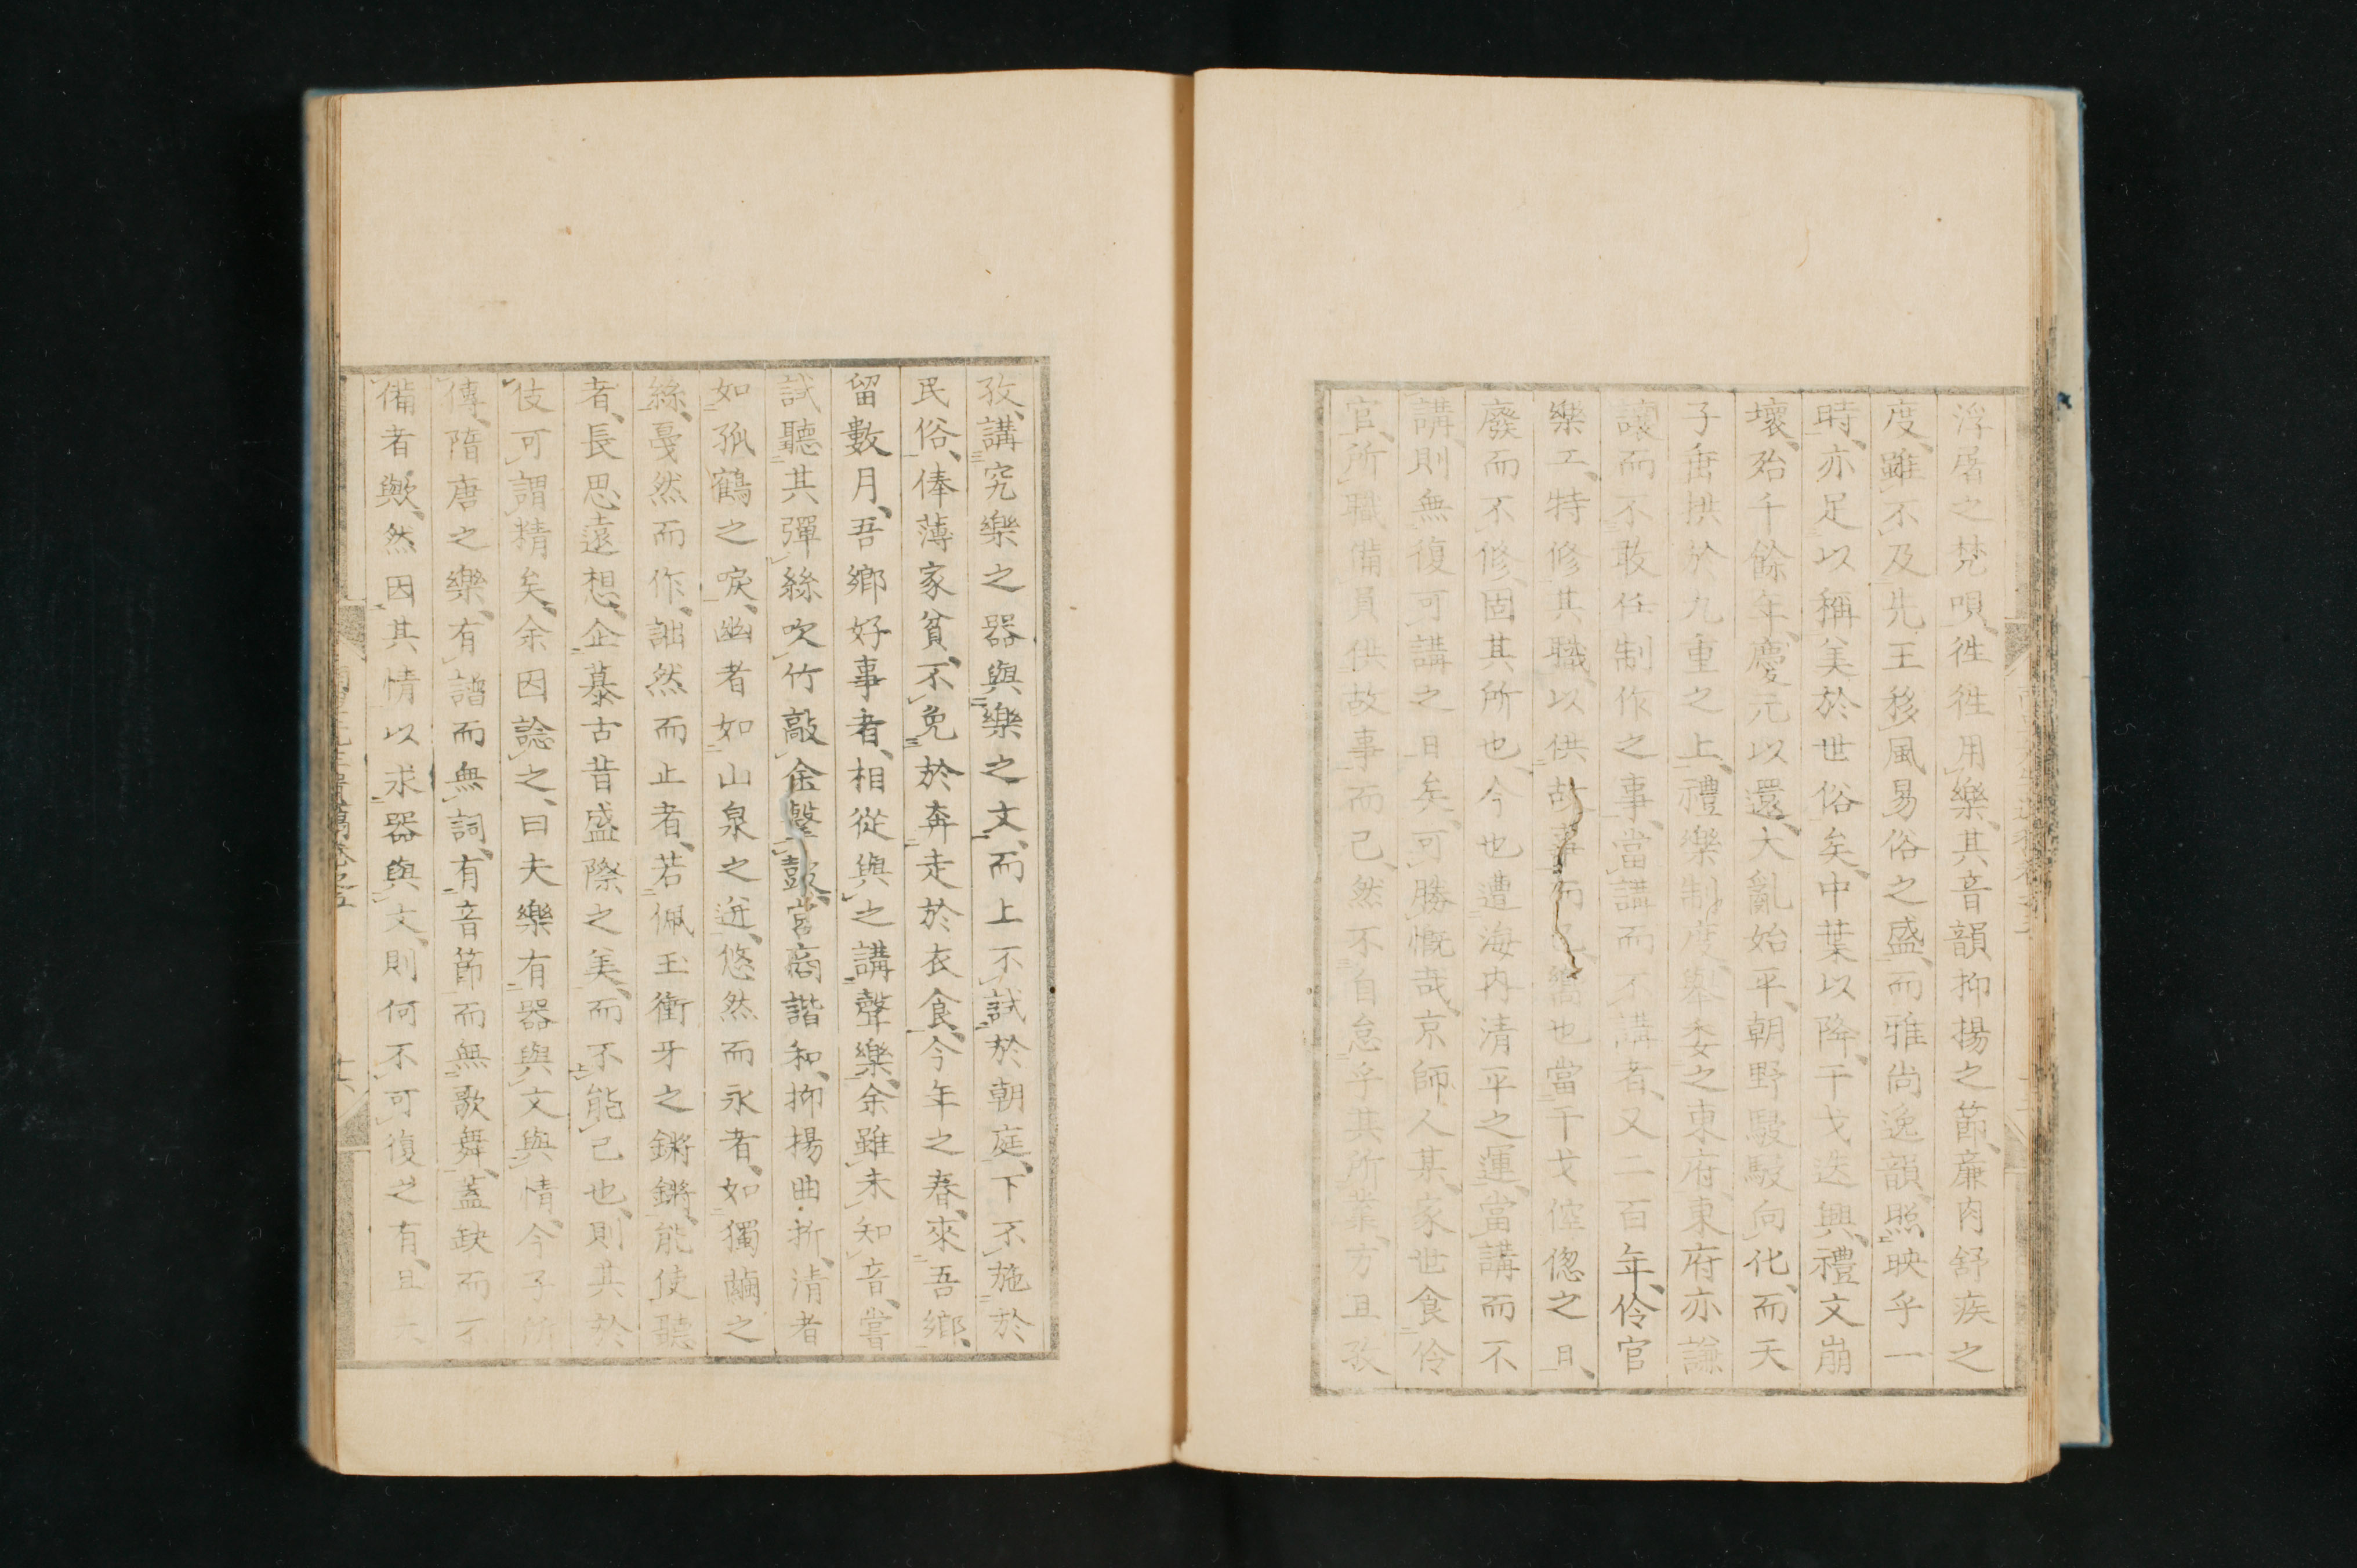 浮屠之梵唄、徃徃用樂、其音韻抑揚之節、廉肉舒疾之
度、雖不及先王移風易俗之盛、而雅尚逸韻、照映乎一
時、亦足以稱美於世俗矣、中葉以降、干戈迭興、禮文崩
壞、殆千餘年、慶元以還、大亂始平、朝野駸駸向化、而天
子垂拱於九重之上、禮樂制度、與委之東府、東府亦謙
讓而不敢任制作之事、當講而不講者、又二百年、伶官
樂工、特修其職、以供故事而已、嚮也當干戈倥偬之日、
廢而不修、固其所也、今也遭海內清平之運、當講而不
講、則無復可講之日矣、可勝慨哉、京師人某、家世食伶
官、所職備員供故事而已、然不自怠乎其所業、方且孜
孜、講究樂之器與樂之文、而上不試於朝庭、下不施於
民俗、俸薄家貧、不免於奔走於衣食、今年之春、來吾鄉、
留數月、吾鄉好事者、相從與之講聲樂、余雖未知音、嘗
試聽其彈絲吹竹敲金擊鼓、宮商諧和、抑揚曲折、清者
如孤鶴之唳、幽者如山泉之迸、悠然而永者、如獨繭之
絲、戞然而作、詘然而止者、若佩玉衝牙之鏘鏘、能使聽
者、長思遠想、企慕古昔盛際之美、而不能已也、則其於
伎可謂精矣、余因諗之、曰夫樂有器與文與情、今子所
傳、隋唐之樂、有譜而無詞、有音節而無歌舞、蓋缺而不
備者歟、然因其情以求器與文、則何不可復之有、且